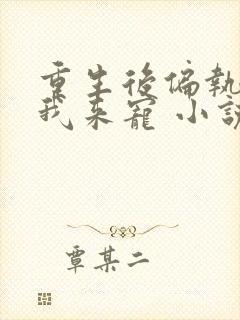 重生後偏執
我来寵 小說
覃某二